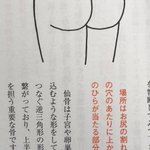 場所はお尻の割れ
の穴のあたりに上か
のひらが当たる部分
仙骨は子宮や卵巣
込むような形をして
つなぐ逆三角形の形
繋がっており、上
を担う重要な骨です